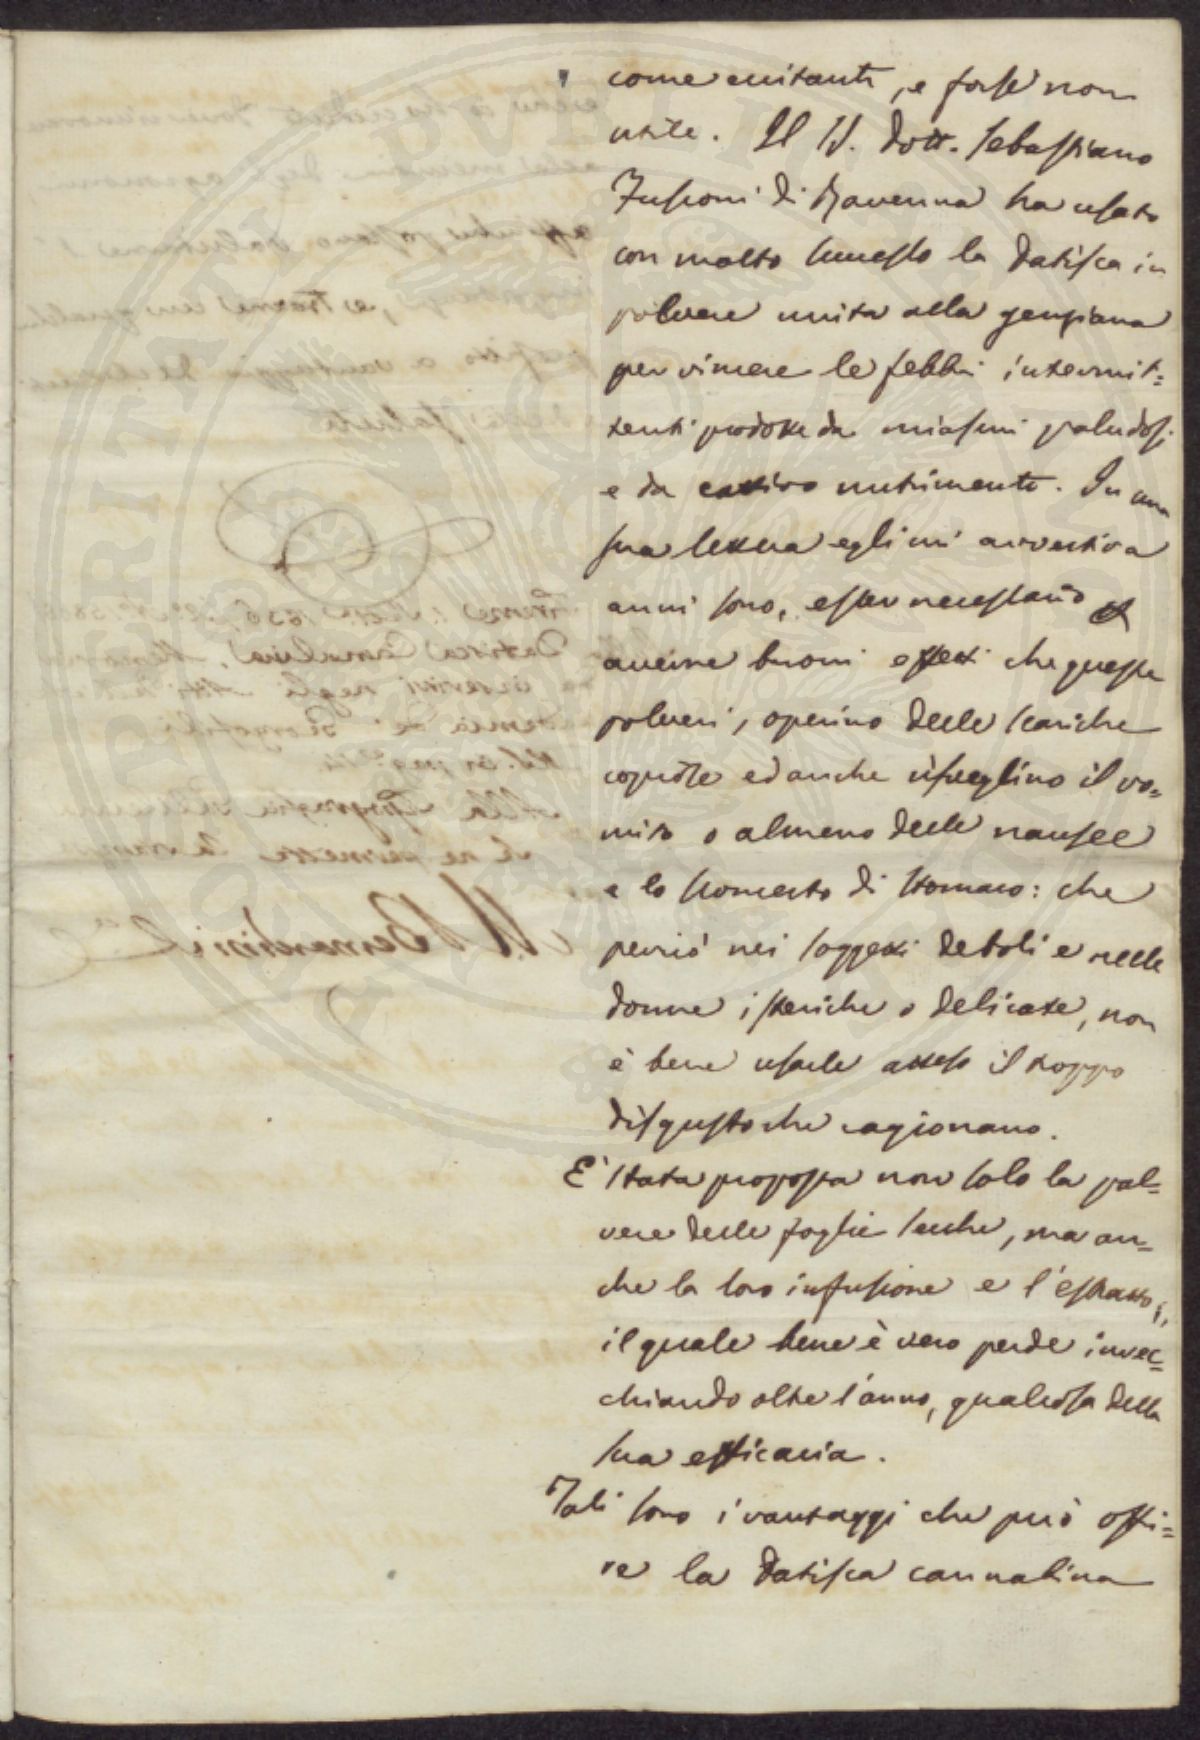 come eccitante, e forse non
utile. Il S.r Dott. Sebastiano
Fusconi di Ravenna ha usato
con molto successo la Datisca in
polvere unita alla genziana
per vincere le febbri intermit=
tenti prodotte da miasmi paludosi
e da cattivo nutrimento. In una
sua lettera egli mi avvertiva
anni sono, esser necessario
averne buoni effetti che queste
polveri, operino delle scariche
copiose ed anche risveglino il vo=
mito o almeno delle nausee
e lo sconcerto di stomaco: che
perciò nei soggetti deboli e nelle
donne isteriche o delicate, non
è bene usarle atteso il troppo
disgusto che cagionano.
E' stata proposta non solo la pol=
vere delle foglie secche, ma an=
che la loro infusione e l'estratto,
il quale bene è vero perde invec=
chiando oltre l'anno, qualcosa della
sua efficacia.
Tali sono i vantaggi che può offri=
re la Datisca cannabina